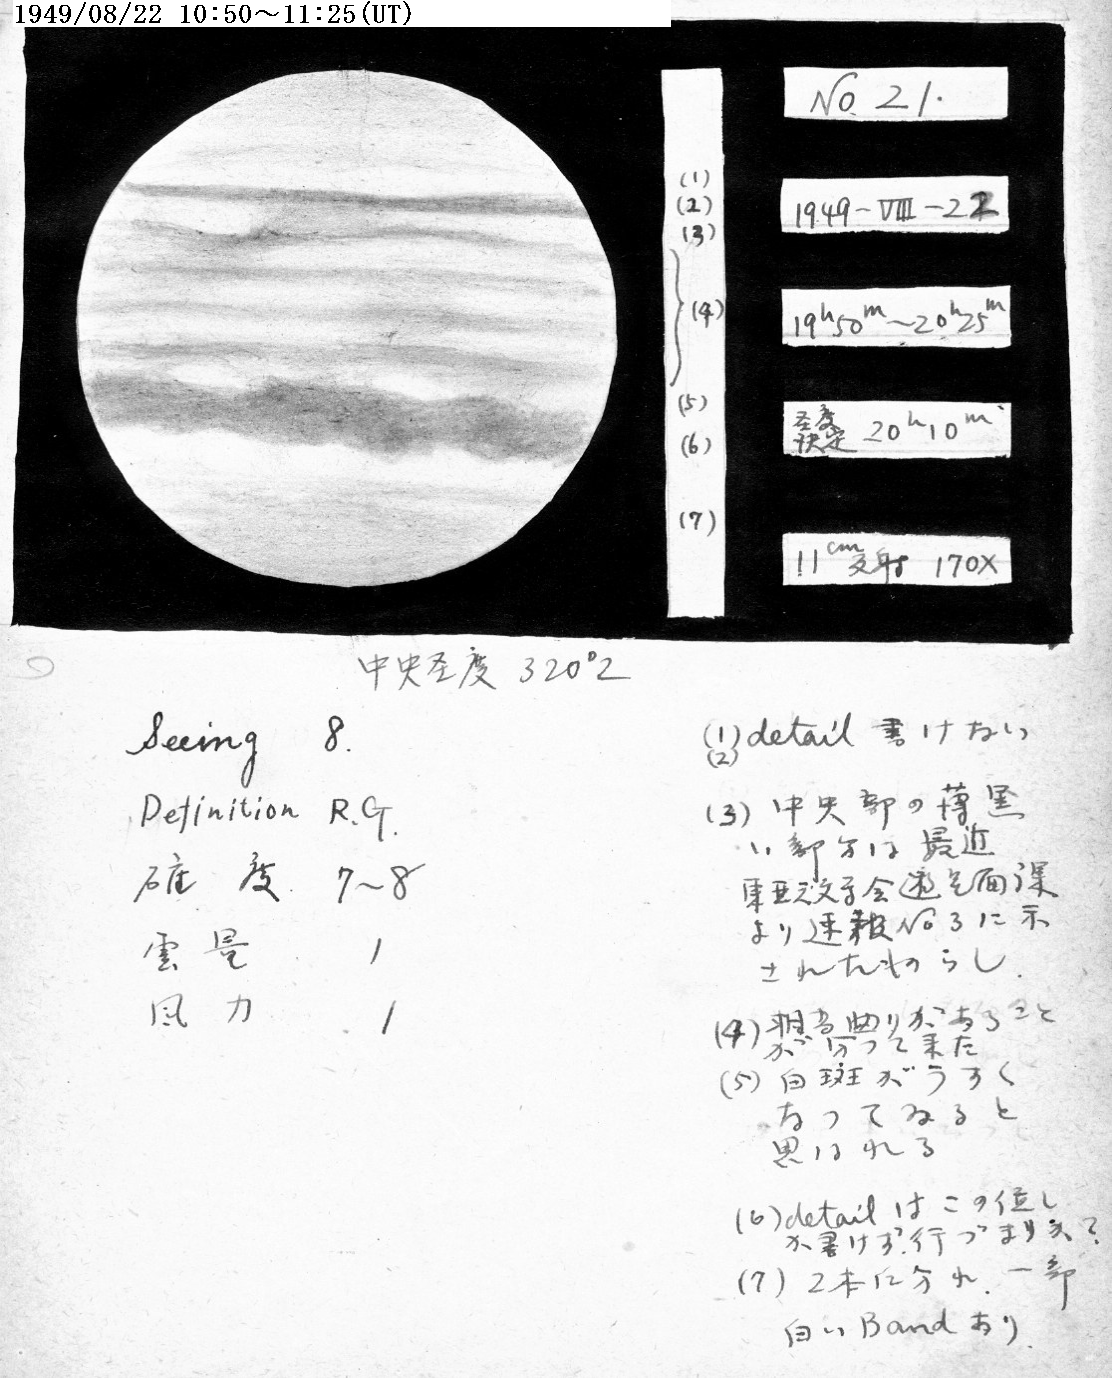 1949/08/22 10:50～11:25(UT)
No. 21.
(1)
(2)
(3)
(4)
(5)
(6)
(7)
1949-Ⅷ-22
19h50m～20h25m
圣度
決定 20h10m
11cm 反射 170X
中央圣度 320°2
Seeing 8.
Definition R.G.
確度 7～8
雲量 1
風力 1
(1) detail 書けない
(2)
(3) 中央部の薄黒
い部分は最近
東亜天文学会遊星面課
より速報No3に示
されたものらし.
(4) 相当曲りがあること
が分って来た
(5) 白斑がうすく
なってゐると
思はれる
(6) detailはこの位し
か書けず.行づまりか?
(7) 2本に分れ.一部
白いBandあり.